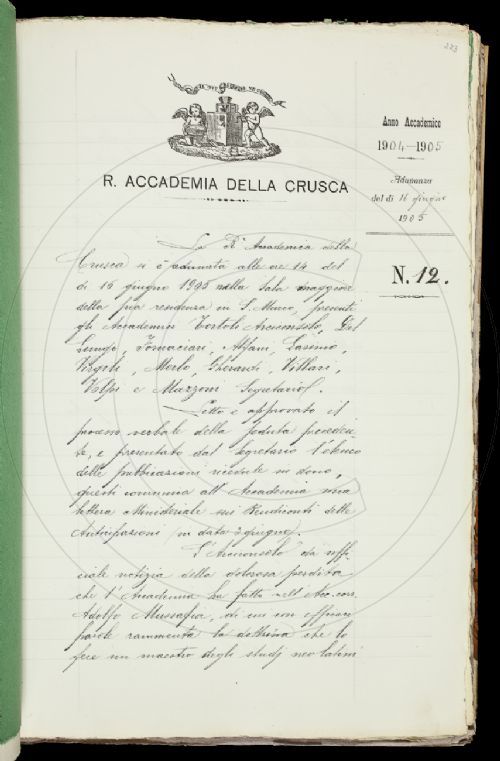 223
Anno Accademico
1904-1905
Adunanza
del dì 16 giugno
1905
N. 12.
R. ACCADEMIA DELLA CRUSCA
La R. Accademia della
Crusca si è adunata alle ore 14 del
dì 16 giugno 1905 nella Sala maggiore
della sua residenza in S. Marco, presenti
gli Accademici Tortoli Arciconsolo, Del
Lungo, Fornaciari, Alfani,
Virgili, Merlo, Gherardi, Villari,
Volpi e Mazzoni Segretario.
Letto e approvato il
processo verbale della seduta preceden
te, e presentato dal Segretario l'elenco
delle pubblicazioni ricevute in dono,
questi comunica all'Accademia una
lettera Ministeriale sui Rendiconti delle
Anticipazioni in data 2 giugno.
L'Arciconsolo dà uffi-
ciale notizia della dolorosa perdita
che l'Accademia ha fatto nell'Acc. corr.
Adolfo Mussafia, di cui con
parole rammenta la dottrina che lo
fece un maestro degli studj neo latini